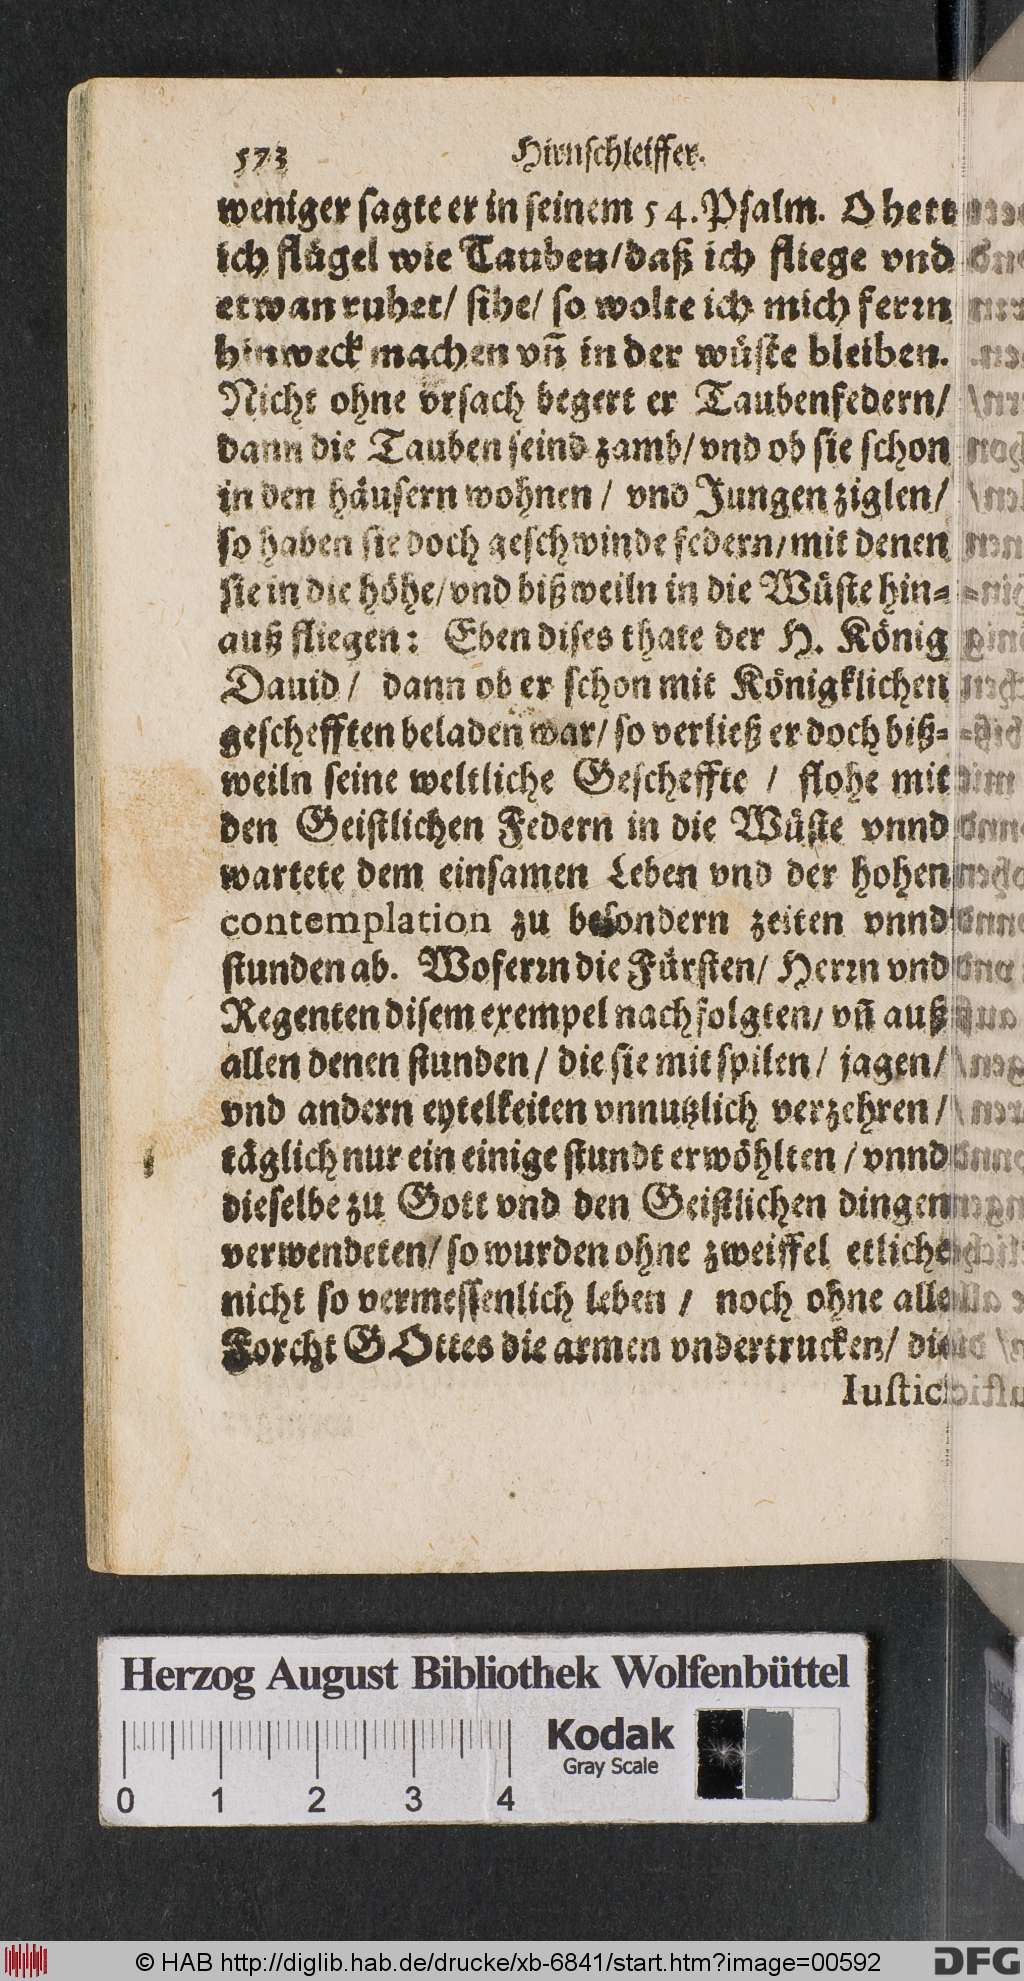 573 Hirnschleiffer.
weniger sagte er in seinem 54. Psalm. O hett
ich flügel wie Tauben/ daß ich fliege vnd
etwan ruhet/ sihe/ so wolte ich mich ferrn
hinweck machen vñ in der wüste bleiben.
Nicht ohne vrsach begert er Taubenfedern/
dann die Tauben seind zamb/ vnd ob sie schon
in den häusern wohnen / vnd Jungen ziglen/
so haben sie doch geschwinde federn/ mit denen
sie in die höhe/ vnd bißweiln in die Wüste hin-
auß fliegen: Eben dises thate der H. König
Dauid / dann ob er schon mit Königklichen
geschefften beladen war/ so verließ er doch biß-
weiln seine weltliche Gescheffte / flohe mit
den Geistlichen Federn in die Wüste vnnd
wartete dem einsamen Leben vnd der hohen
contemplation zu besondern zeiten vnnd
stunden ab. Woferrn die Fürsten/ Herrn vnd
Regenten disem exempel nachfolgten/ vñ auß
allen denen stunden / die sie mit spilen / jagen/
vnd andern eytelkeiten vnnutzlich verzehren /
täglich nur ein einige stundt erwöhlten / vnnd
dieselbe zu Gott vnd den Geistlichen dingen
verwendeten/ so wurden ohne zweiffel etliche
nicht so vermessenlich leben / noch ohne alle
Forcht GOttes die armen vndertrucken/ die
Iustici
Herzog August Bibliothek Wolfenbüttel
Kodak
Gray Scale
0 1 2 3 4
© HAB http://diglib.hab.de/drucke/xb-6841/start.htm?image=00592
DFG